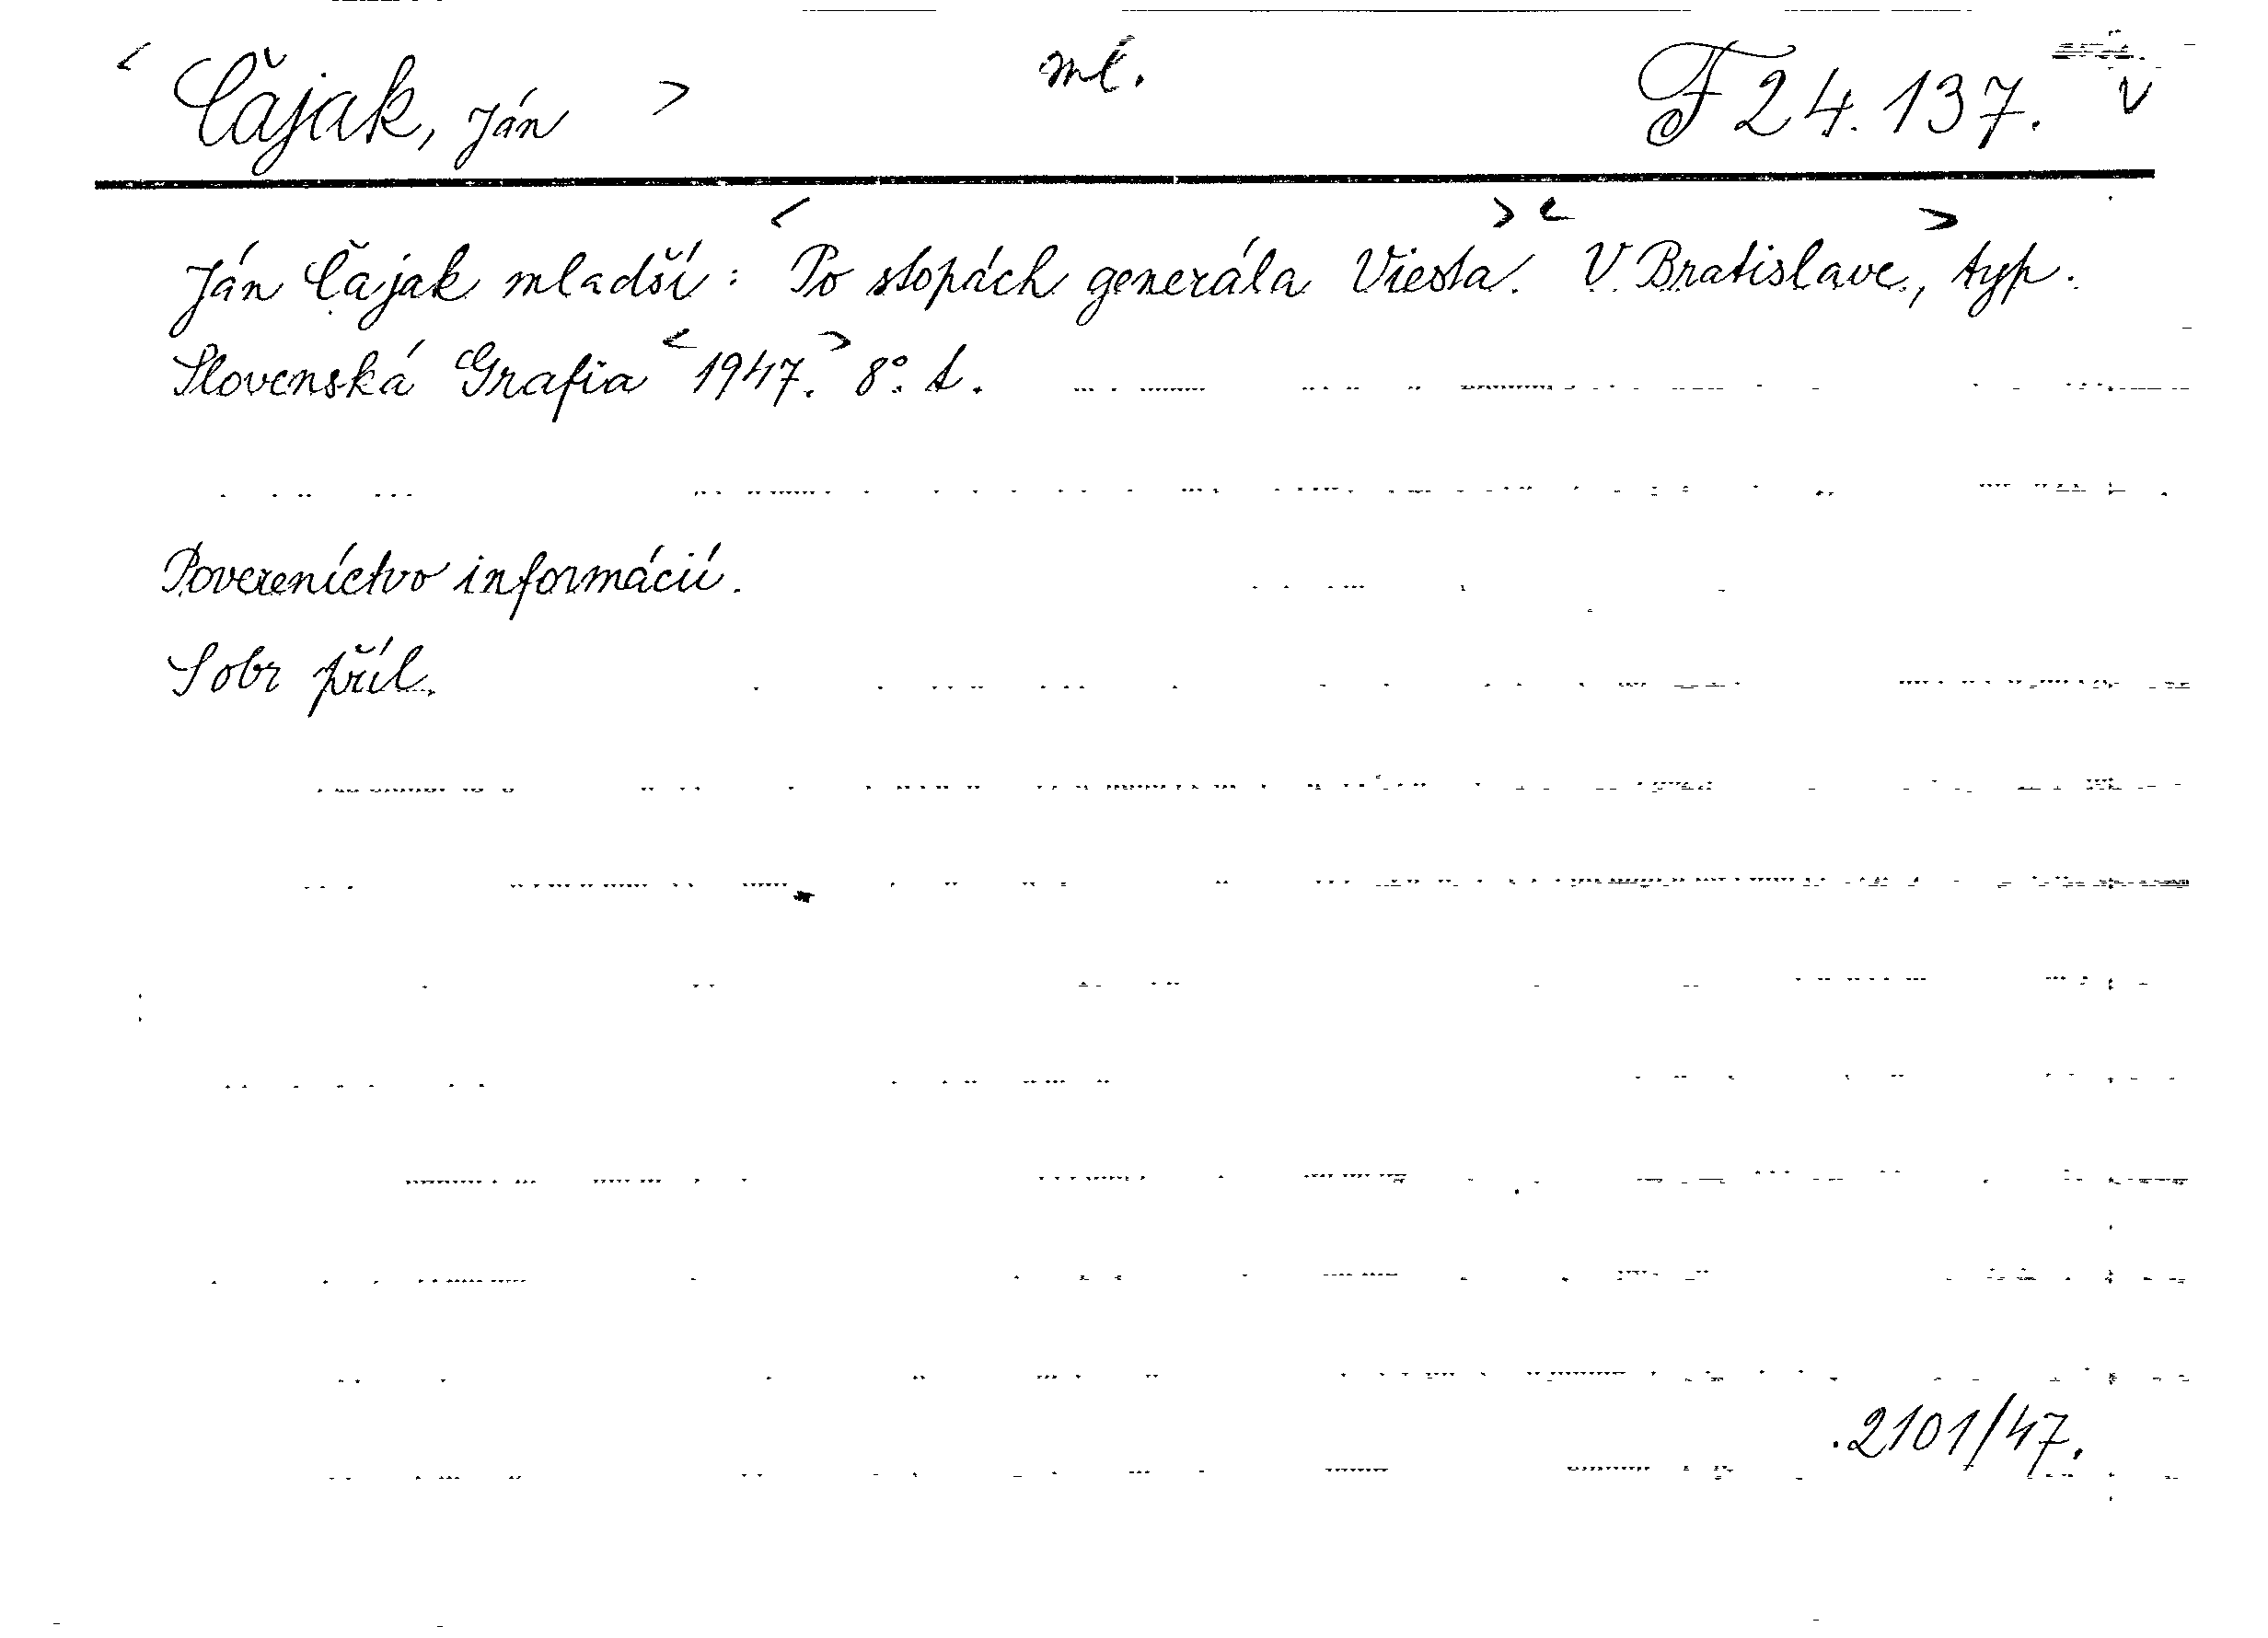 < Čajak, Ján > ml. F 24.137. v
Ján Čajak mladší: < Po stopách generála Viesta. > < V Bratislave, > typ.
Slovenská Grafia < 1947. > 8°. t.
Povereníctvo informácií.
S obr příl.
2101/47.